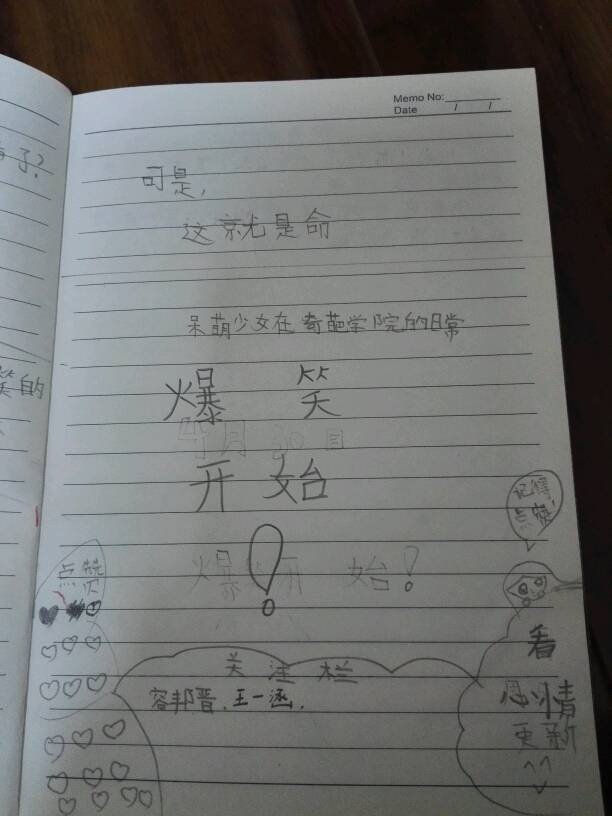 Memo No:
Date / /
子?
可是,
这就是命
呆萌少女在奇葩学院的日常
笑的
爆笑
4月30日
开始
!
爆 开始!
记得
点赞
点赞
看
心情
更新
关注栏
容邦晋.王一涵.